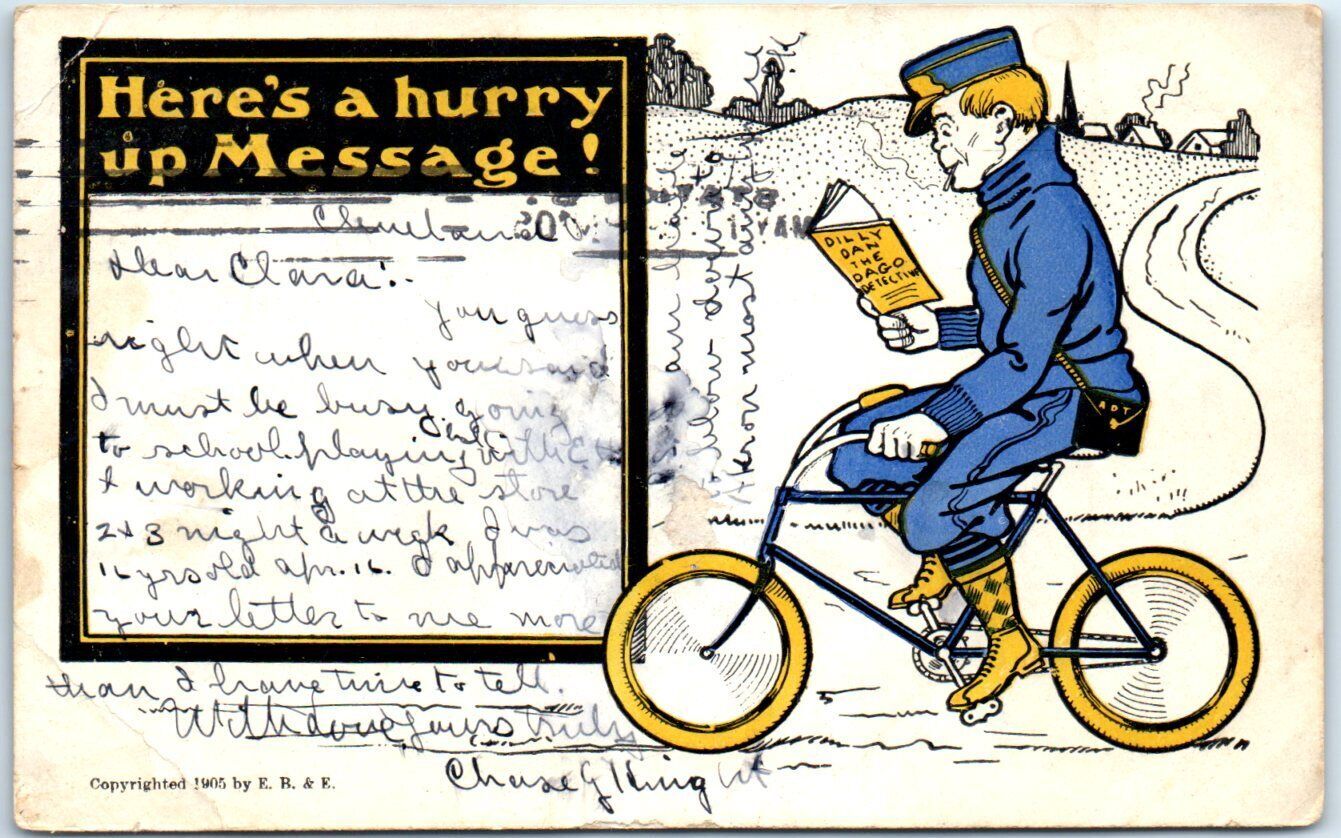 Here's a hurry
up Message!
Cleveland
Dear Clara:-
You guess
right when you said
I must be busy. going
to school. playing
& working at the store
2 & 3 night a week I was
16 yrs old Apr. 16. I appreciated
your letter to me more
than I have time to tell.
With love yours truly
Chase G Knight
DILLY
DAN
THE
DAGO
DETECTIVE
ADT
Copyrighted 1905 by E. B. & E.
am
down to
Akron most